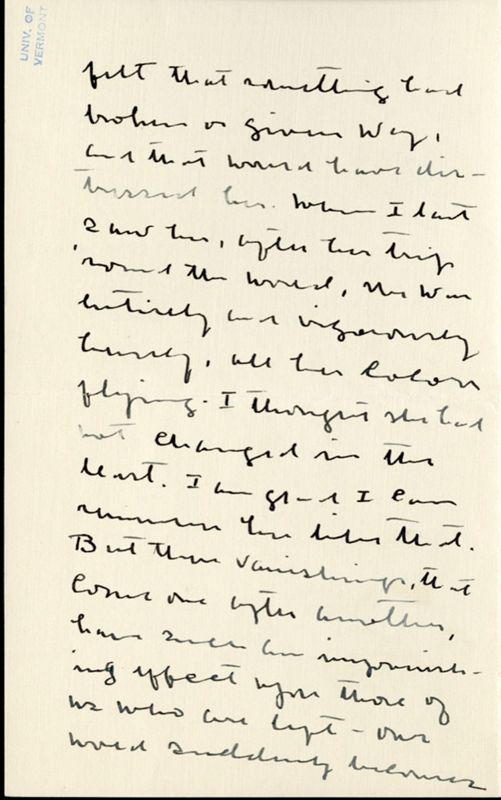 UNIV. OF
VERMONT
felt that something had
broken or given way,
and that would have dis-
tressed her. When I last
saw her, after her trip
'round the world, she was
entirely and vigorously
herself, all her colors
flying. I thought she had
not changed in the
least. I am glad I can
remember her like that.
But these vanishings, that
come one after another,
have such an impoverish-
ing effect upon those of
us who are left - our
world suddenly becomes